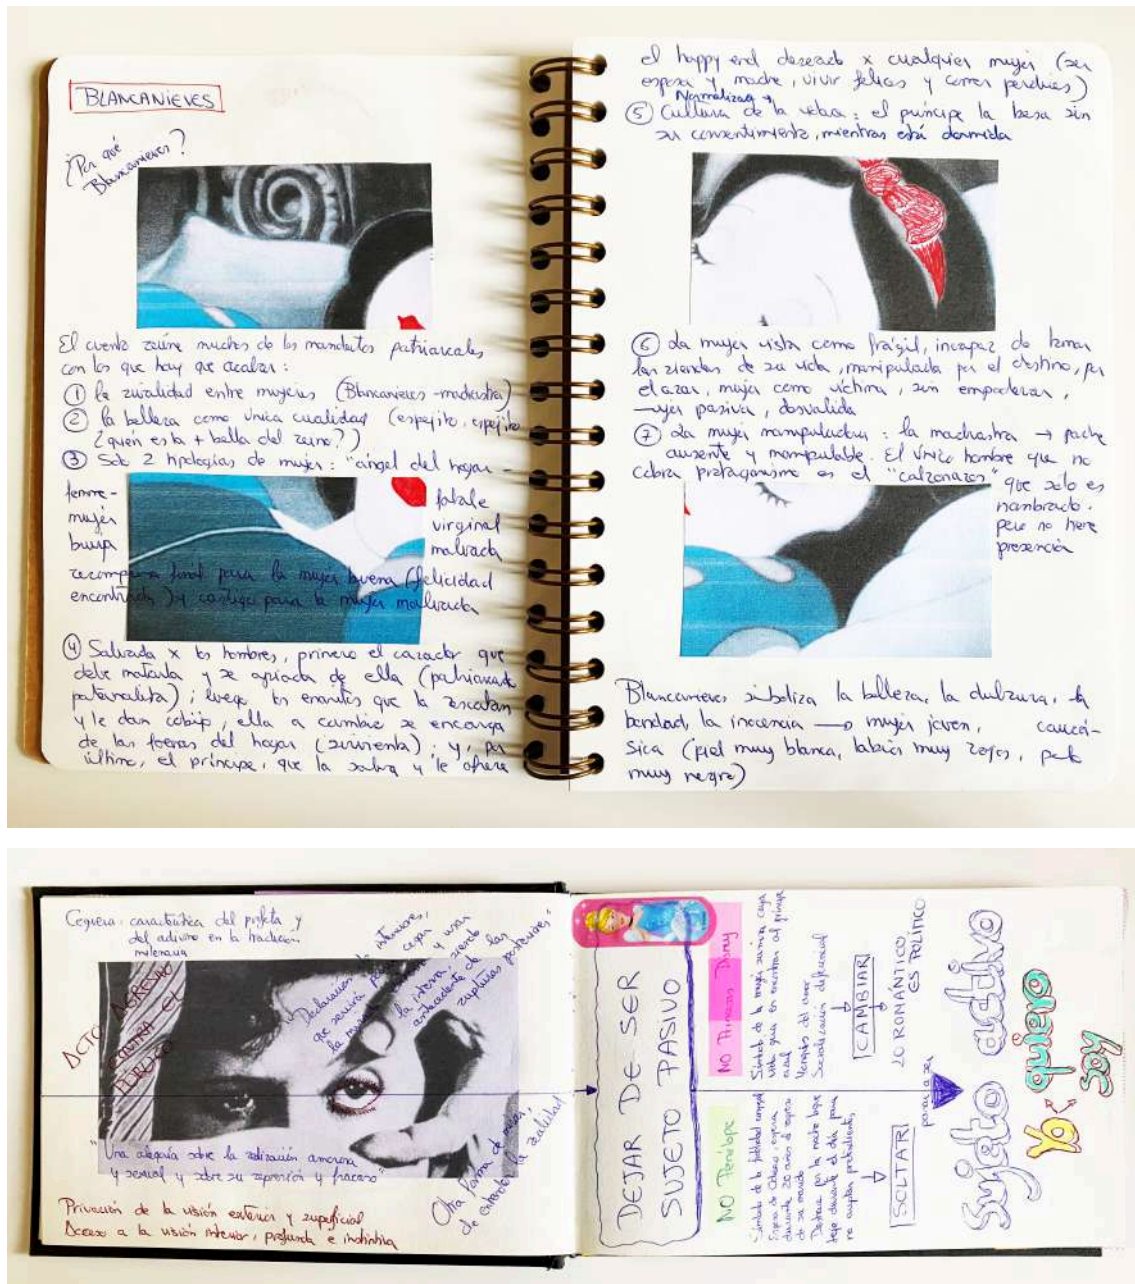 BLANCANIEVES
¿Por qué
Blancanieves?
El cuento reúne muchos de los mandatos patriarcales
con los que hay que acabar:
① la rivalidad entre mujeres (Blancanieves-madrastra)
② la belleza como única cualidad (espejito, espejito
¿quién es la + bella del reino?)
③ Solo 2 tipologías de mujer: "ángel del hogar -
femme- fatale
mujer virginal
bruja malvada
recompensa final para la mujer buena (felicidad
encontrada) y castigo para la mujer malvada
④ Salvada x los hombres, primero el cazador que
debe matarla y se apiada de ella (patriarcado
paternalista); luego los enanitos que la rescatan
y le dan cobijo, ella a cambio se encarga
de las tareas del hogar (sirvienta); y, por
último, el príncipe, que la salva y le ofrece
el happy end deseado x cualquier mujer (ser
esposa y madre, vivir felices y comer perdices)
Normalizac
⑤ Cultura de la : el príncipe la besa sin
su consentimiento, mientras está dormida
⑥ La mujer vista como frágil, incapaz de tomar
las riendas de su vida, manipulada por el destino, por
el azar, mujer como víctima, sin empoderar,
mujer pasiva, desvalida
⑦ La mujer manipuladora: la madrastra → padre
ausente y manipulable. El único hombre que no
cobra protagonismo es el "calzonazos" que solo es
nombrado.
pero no hace
presencia
Blancanieves simboliza la belleza, la dulzura, la
bondad, la inocencia → mujer joven, caucá-
sica (piel muy blanca, labios muy rojos, pelo
muy negro)
Ceguera: característica del profeta y
del adivino en la tradición
milenaria
ACTO AGRESIVO
CONTRA EL
PÚBLICO
"Declaración de intenciones,
que servirá para cegar
la mirada externa y usar
la interna siendo
antecedente de las
rupturas posteriores"
"Una alegoría sobre la realización amorosa
y sexual y sobre su represión y fracaso"
Otra forma de mirar,
de entender la realidad
Privación de la visión exterior y superficial
Acceso a la visión interior, profunda e instintiva
DEJAR DE SER
SUJETO PASIVO
NO Penélope
Símbolo de la fidelidad conyugal
Esposa de Odiseo, espera
durante 20 años el regreso
de su marido
Desteje por la noche lo que
teje durante el día para
no aceptar pretendientes
SOLTAR
NO Princesas Disney
Símbolo de la mujer sumisa cuya
vida gira en encontrar al príncipe
azul
del amor
Socialización diferencial
CAMBIAR
LO ROMÁNTICO
ES POLÍTICO
pasar a ser
sujeto activo
Yo
elijo
hoy